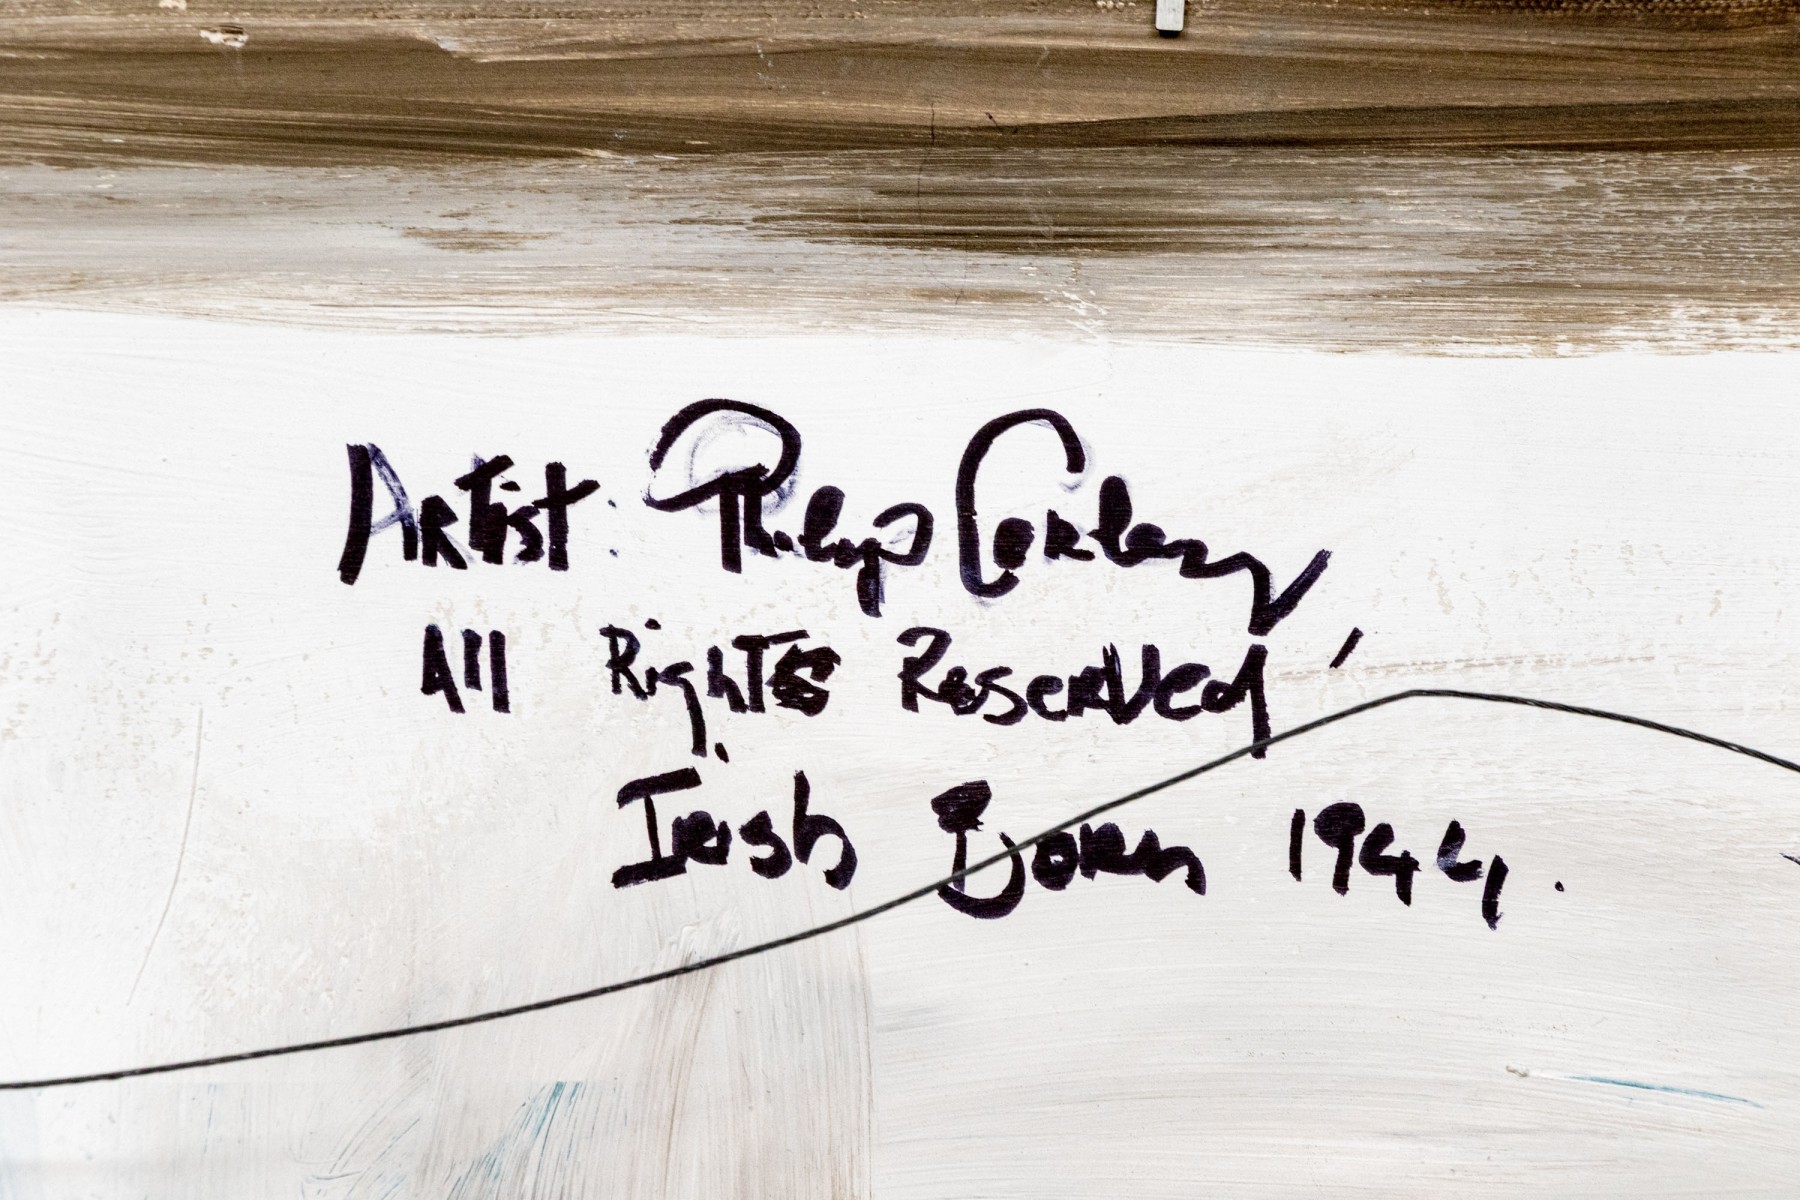 Artist: Philip Conlan
All Rights Reserved
Irish Born 1944.